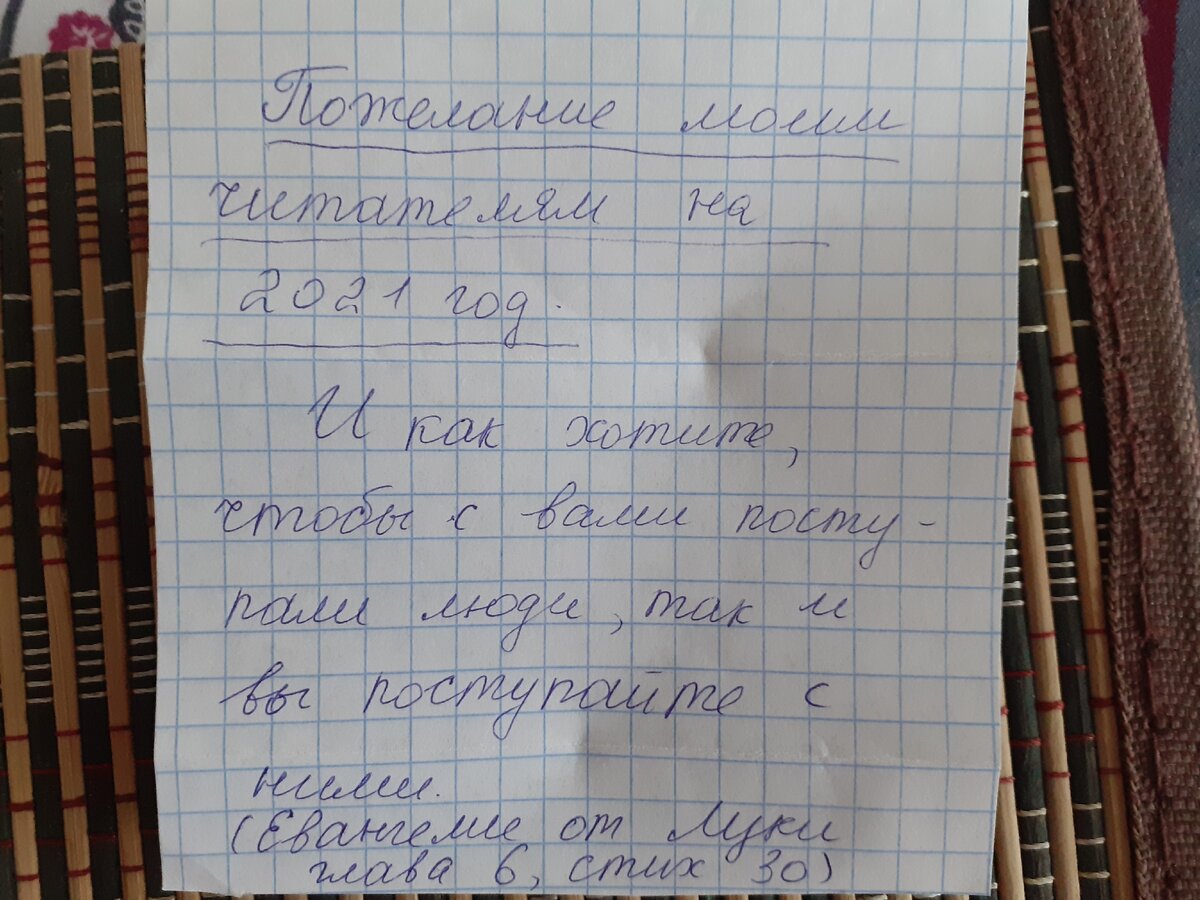 Пожелание моим
читателям на
2021 год.
И как хотите,
чтобы с вами посту-
пали люди, так и
вы поступайте с
ними.
(Евангелие от Луки
глава 6, стих 30)